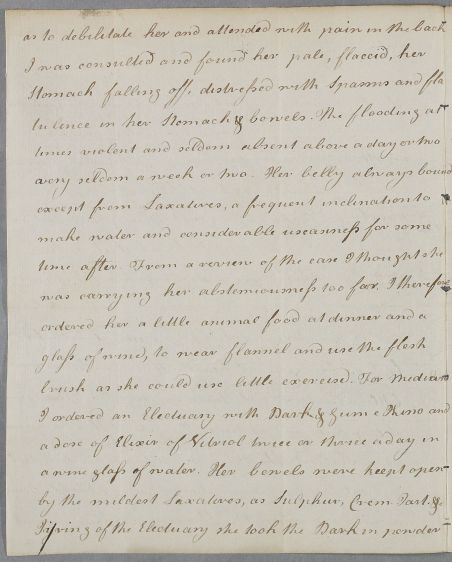 as to debilitate her and attended with pain in the back
I was consulted and found her pale, flaccid, her
Stomach falling off, distressed with Spasms and fla
tulence in her Stomach & bowels. The flooding at
times violent and seldom absent above a day or two
very seldom a week or two. Her belly always bound
except from Laxatives, a frequent inclination to
make water and considerable uneasiness for some
time after. From a review of the case I thought she
was carrying her abstemiousness too far, I therefore
ordered her a little animal food at dinner and a
glass of wine, to wear flannel and use the flesh
brush as she could use little exercise. For Medicine
I ordered an Electuary with Bark & gum e Kino and
a dose of Elixir of Vitriol twice or thrice a day in
a wine glass of water. Her bowels were keept open
by the mildest Laxatives, as Sulphur, Crem. Tart. &c
Tiring of the Electuary she took the Bark in powder